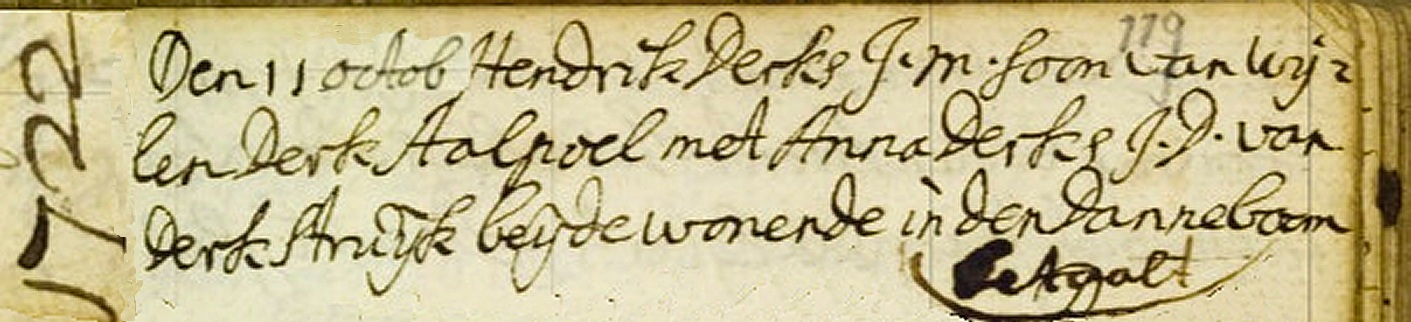 1722
119
Den 11 octob Hendrik Derks J.m. soon van wij-
len Derk Aalpoel met Anna Derks J.D. van
Derk Struijk beijde wonende in den Danneboom